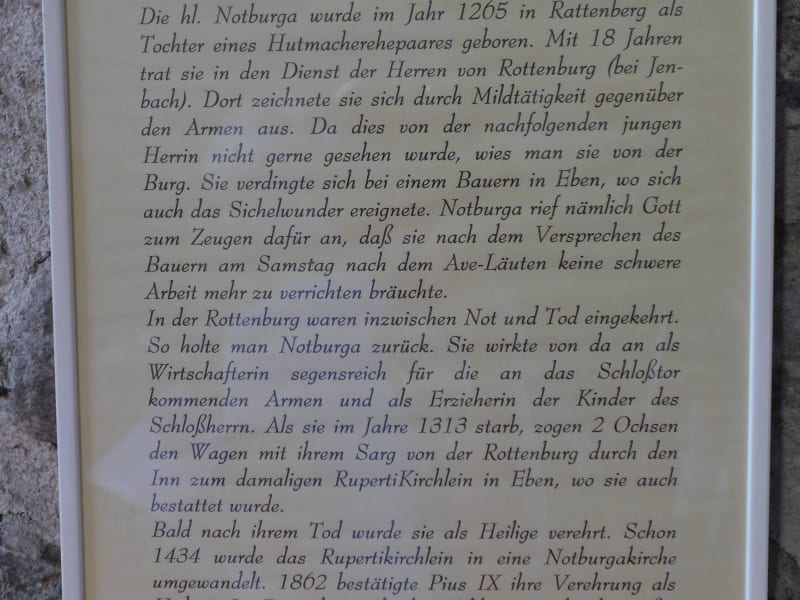 Die hl. Notburga wurde im Jahr 1265 in Rattenberg als
Tochter eines Hutmacherehepaares geboren. Mit 18 Jahren
trat sie in den Dienst der Herren von Rottenburg (bei Jen-
bach). Dort zeichnete sie sich durch Mildtätigkeit gegenüber
den Armen aus. Da dies von der nachfolgenden jungen
Herrin nicht gerne gesehen wurde, wies man sie von der
Burg. Sie verdingte sich bei einem Bauern in Eben, wo sich
auch das Sichelwunder ereignete. Notburga rief nämlich Gott
zum Zeugen dafür an, daß sie nach dem Versprechen des
Bauern am Samstag nach dem Ave-Läuten keine schwere
Arbeit mehr zu verrichten bräuchte.
In der Rottenburg waren inzwischen Not und Tod eingekehrt.
So holte man Notburga zurück. Sie wirkte von da an als
Wirtschafterin segensreich für die an das Schloßtor
kommenden Armen und als Erzieherin der Kinder des
Schloßherrn. Als sie im Jahre 1313 starb, zogen 2 Ochsen
den Wagen mit ihrem Sarg von der Rottenburg durch den
Inn zum damaligen RupertiKirchlein in Eben, wo sie auch
bestattet wurde.
Bald nach ihrem Tod wurde sie als Heilige verehrt. Schon
1434 wurde das Rupertikirchlein in eine Notburgakirche
umgewandelt. 1862 bestätigte Pius IX ihre Verehrung als